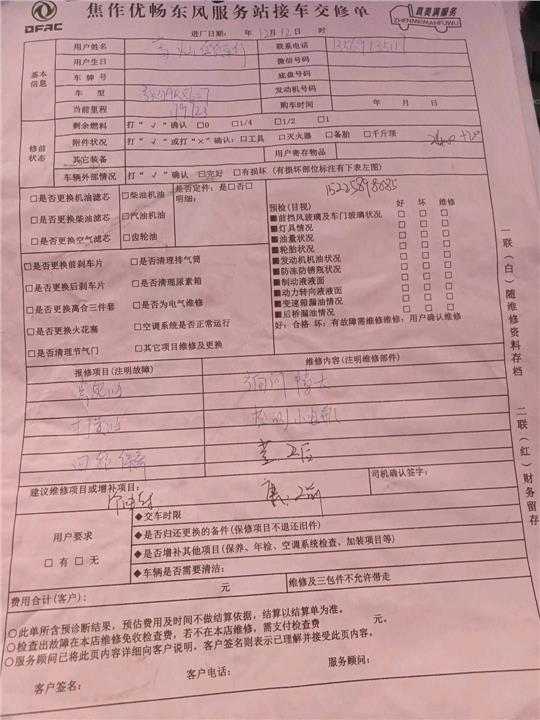 DFAC
焦作优畅东风服务站接车交修单
真美满服务
ZHENMEIMANFUWU
进厂日期: 年 12月12日 时
基本信息
用户姓名 联系电话
用户生日 微信号码
车牌号 底盘号码
车 型 发动机号码
当前里程 购车时间 年 月 日
修前状态
剩余燃料 打“√”确认 □0 □1/4 □1/2 □1
附件状况 打“√”或打“×”确认:□工具 □灭火器 □备胎 □千斤顶
其它装备 用户寄存物品
车辆外部情况 打“√”确认 □完好 □有损坏(有损坏部位标注有下表左图)
□是否更换机油滤芯 □柴油机油 是否定件:是□否□
明细:
□是否更换柴油滤芯 □汽油机油
□是否更换空气滤芯 □齿轮油
□是否更换前刹车片 □是否清理排气筒
□是否更换后刹车片 □是否清理尿素箱
□是否更换离合三件套 □是否为电气维修
□是否更换火花塞 □空调系统是否正常运行
□是否清理节气门 □其它项目维修及更换
15225898685
预检(目视) 好 坏 维修
■前挡风玻璃及车门玻璃状况 □ □ □
■灯具情况 □ □ □
■油量状况 □ □ □
■轮胎状况 □ □ □
■发动机机油状况 □ □ □
■防冻防锈瓶状况 □ □ □
■制动液液面 □ □ □
■动力转向液液面 □ □ □
■变速箱漏油情况 □ □ □
■后桥漏油情况 □ □ □
好:合格 坏:有故障需维修维修:用户确认维修
报修项目(注明故障) 维修内容(注明维修部件)
建议维修项目或增补项目: 司机确认签字:
用户要求
□有 □无
◆交车时限
◆是否归还更换的备件(保修项目不退还旧件)
◆是否增补其他项目(保养、年检、空调系统检查、加装项目等)
◆车辆是否需要清洁:
费用合计(客户): 元 维修及三包件不允许带走
○此单所含预诊断结果,预估费用及时间不做结算依据,结算以结算单为准。
○检查出故障在本店维修免收检查费,若不在本店维修,需支付检查费 元。
○服务顾问已将此页内容详细向客户说明,客户签名则表示已理解并接受此页内容。
客户签名: 客户电话: 服务顾问:
一联(白)随维修资料存档
二联(红)财务留存